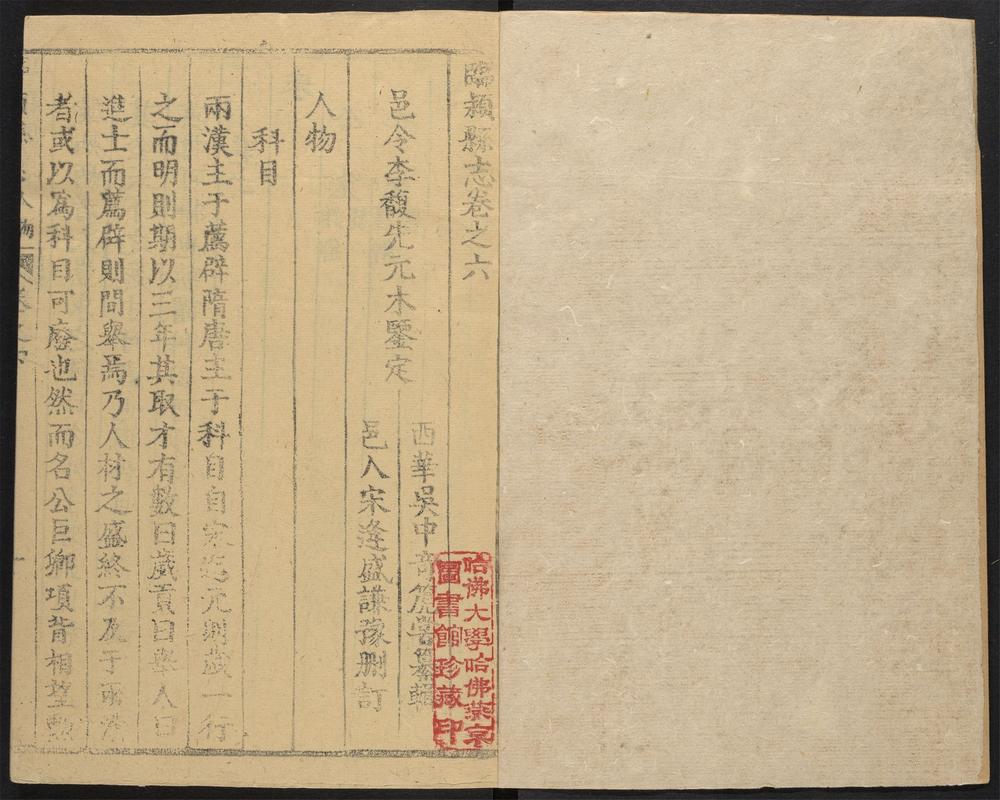 臨潁縣志卷之六
邑令李馥先元木鑒定
西華吳中奇箎雲纂輯
邑人宋逢盛謙豫刪訂
人物
科目
兩漢主于薦辟隋唐主于科目自宋迄元則歲一行
之而明則期以三年其取才有數曰歲貢曰舉人曰
進士而薦辟則間舉焉乃人材之盛終不及于兩漢
者或以爲科目可廢也然而名公巨卿項背相望勳
人物
卷之六
哈佛大學哈佛燕京
圖書館珍藏印